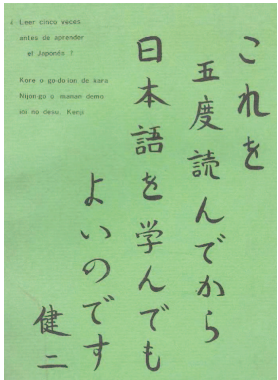 ¿ Leer cinco veces
antes de aprender
el Japonés ?
Kore o go-do ion de kara
Nijon-go o manan demo
ioi no desu. Kenji
これを
五度読んでから
日本語を学んでも
よいのです
健二